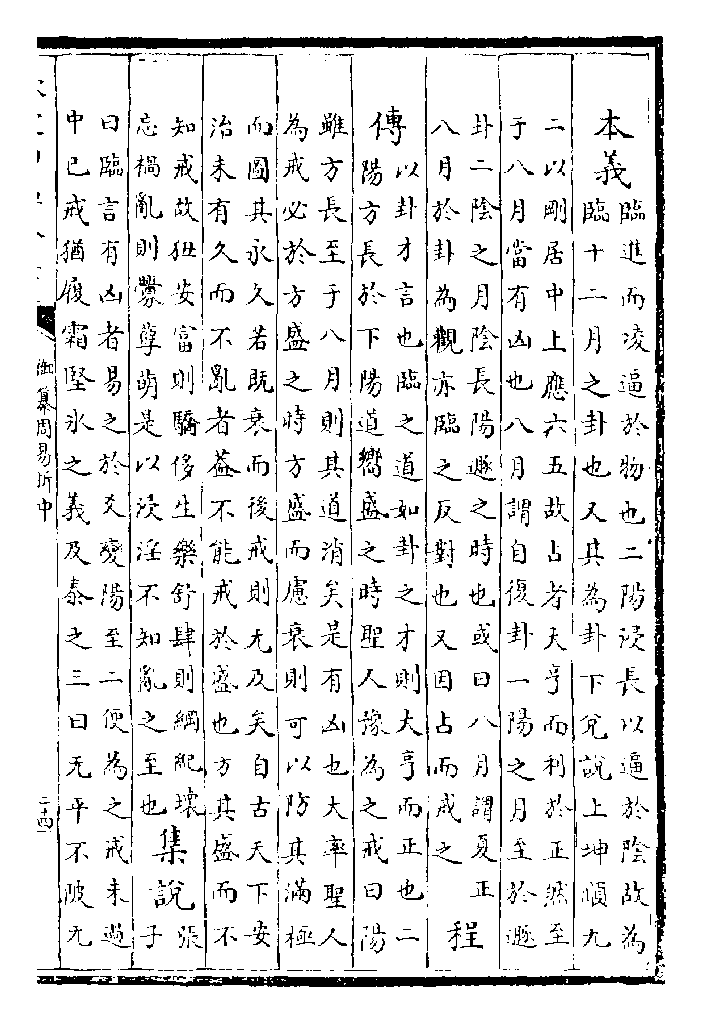 本義
臨進而凌逼於物也二陽浸長以逼於陰故為
臨十二月之卦也又其為卦下兌說上坤順九
二以剛居中上應六五故占者大亨而利於正然至
于八月當有凶也八月謂自復卦一陽之月至於遯
卦二陰之月陰長陽遯之時也或曰八月謂夏正
八月於卦為觀亦臨之反對也又因占而戒之
程
傳
以卦才言也臨之道如卦之才則大亨而正也二
陽方長於下陽道嚮盛之時聖人豫為之戒曰陽
雖方長至于八月則其道消矣是有凶也大率聖人
為戒必於方盛之時方盛而慮衰則可以防其滿極
而圖其永久若既衰而後戒則无及矣自古天下安
治未有久而不亂者葢不能戒於盛也方其盛而不
知戒故狃安富則驕侈生樂舒肆則綱紀壞
忘禍亂則釁孽萌是以浸淫不知亂之至也
集說
張
子
曰臨言有凶者易之於爻變陽至二便為之戒未過
中已戒猶履霜堅氷之義及泰之三曰无平不陂无
御纂周易折中
二十四